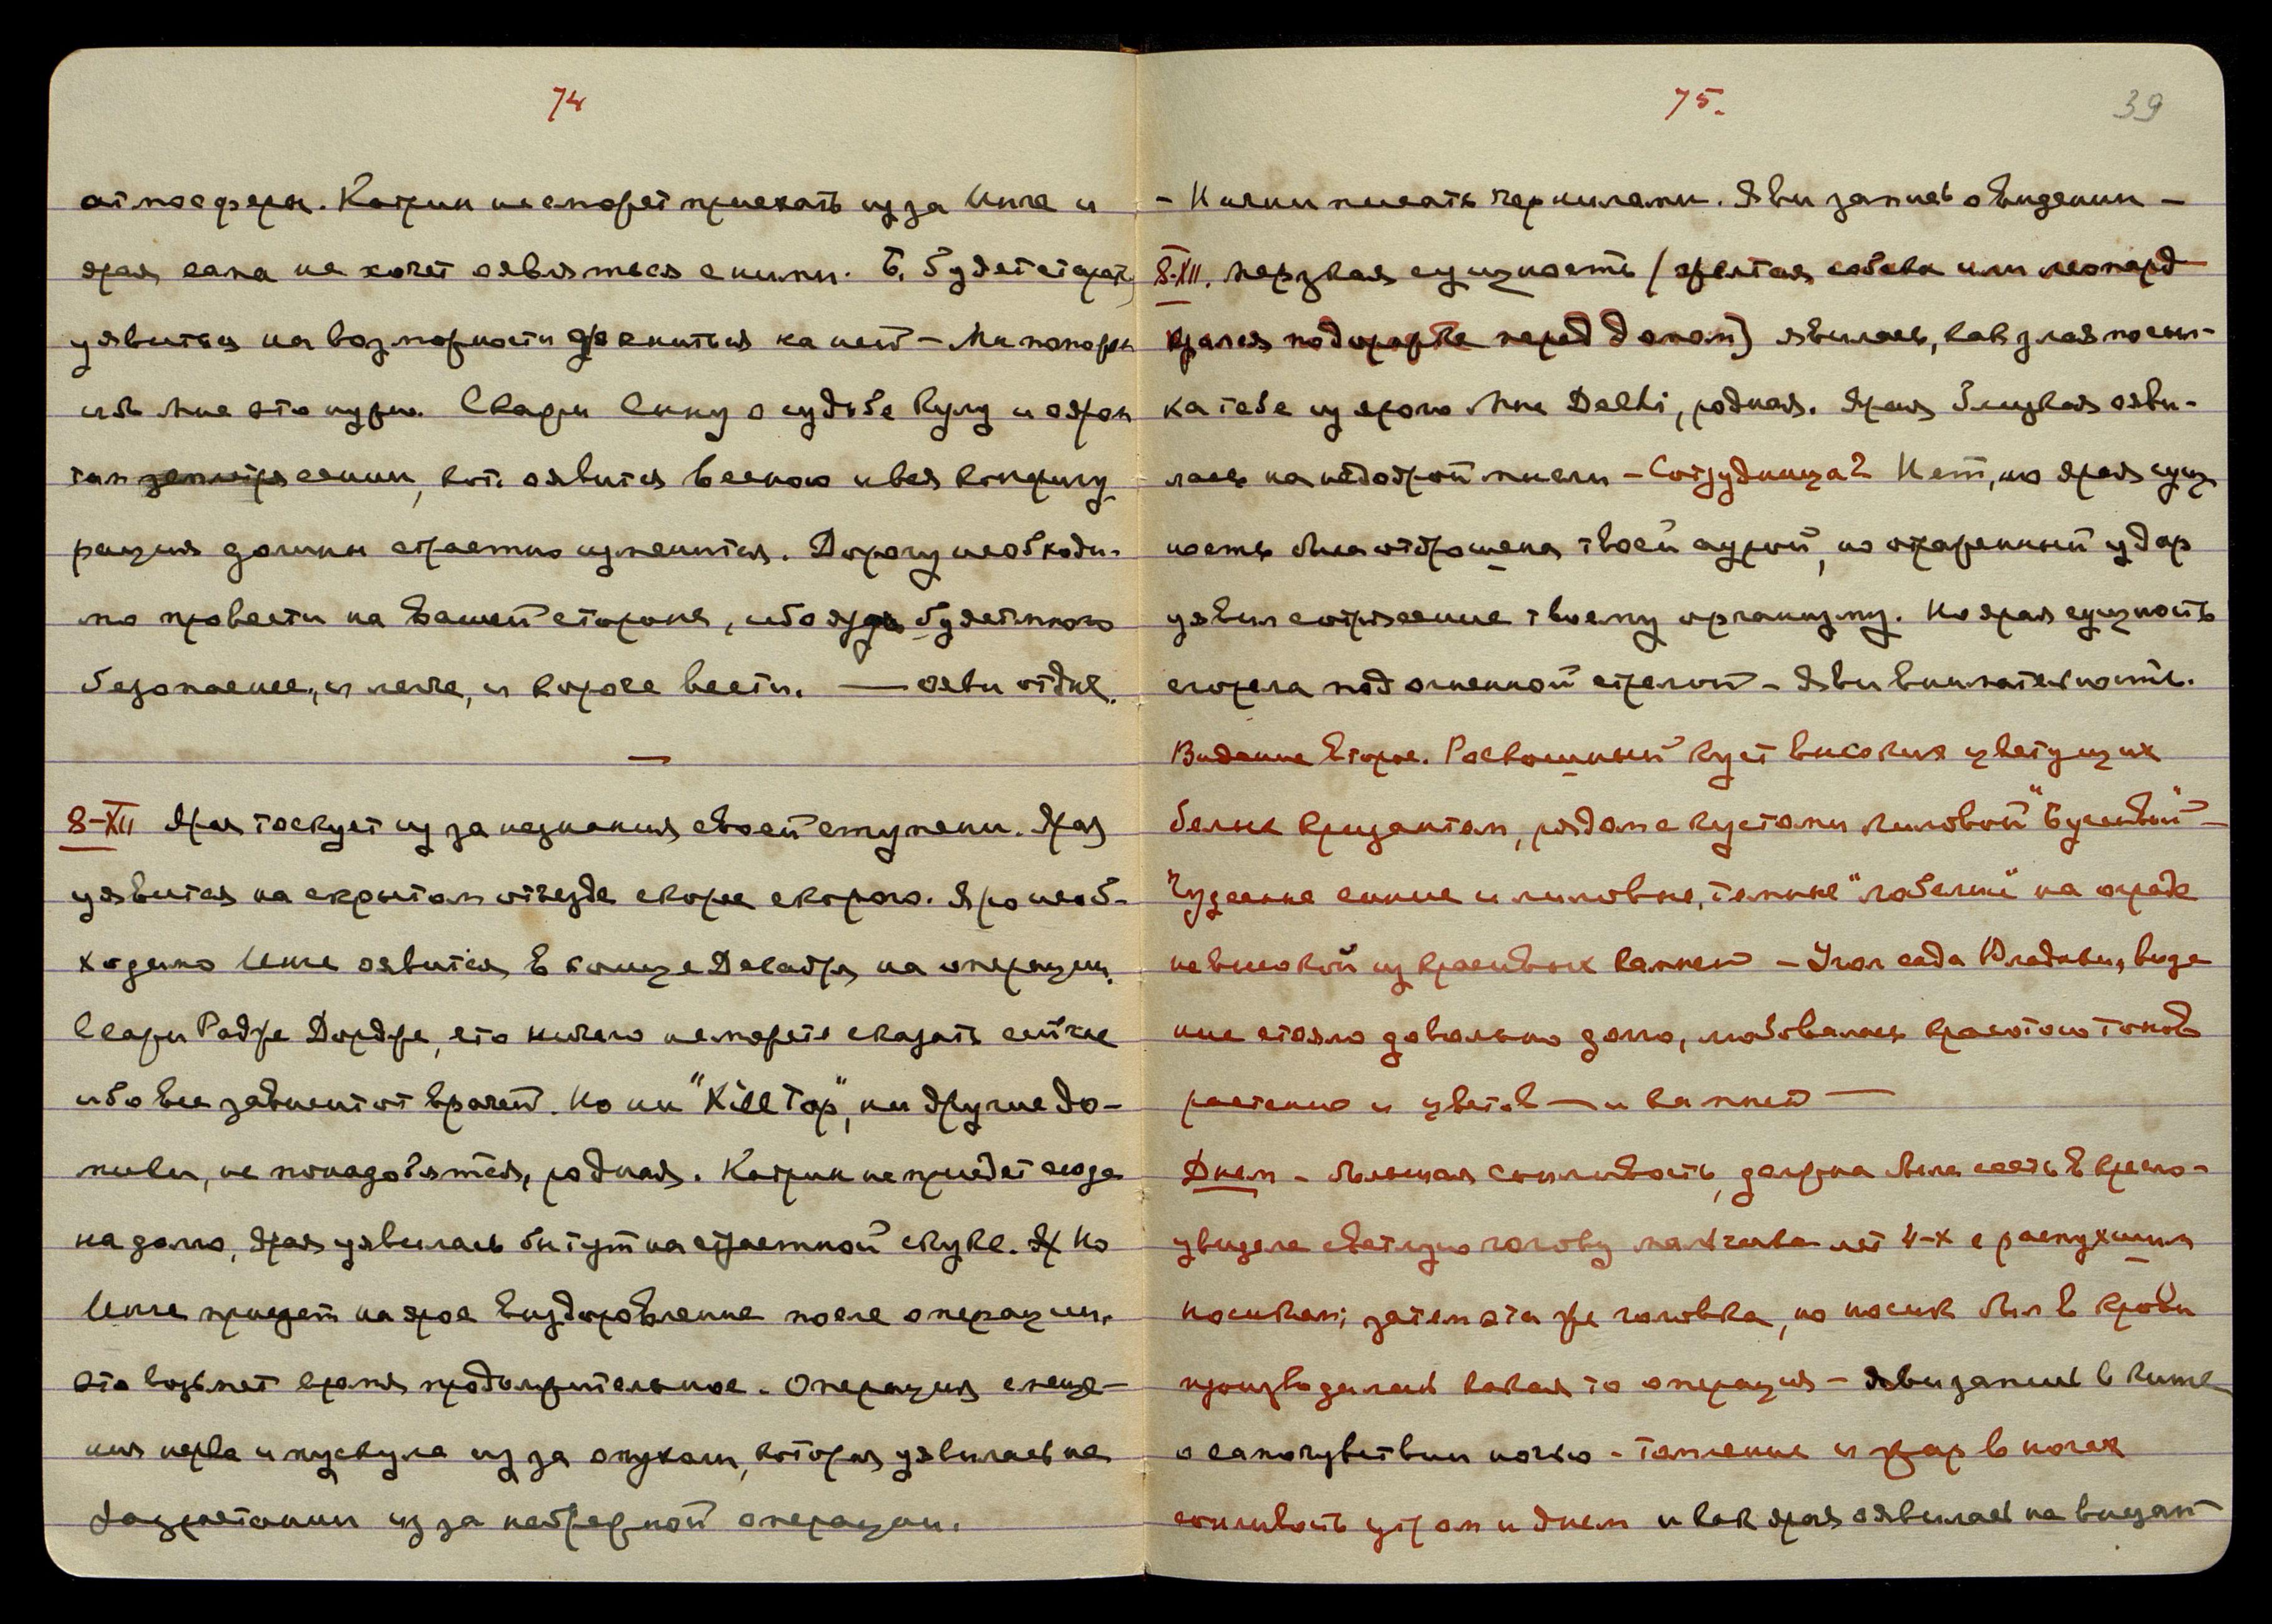 74
атмосферы. Катрин не сможет приехать из за Инге и
ярая сама не хочет оявляться с ними. Б. будет стар.
уявиться на возможности жениться на ней — Мы поможем
ибо Мне это нужно. Скажи Сину о судьбе Кулу и о яром
там землетрясении, кот. оявится весною и вся конфигу
рация долины страстно изменится. Дорогу необходи-
мо провести на Вашей стороне, ибо ярая будет много
безопаснее, и легче, и короче вести. — ояви отдых.
—
8-XII Ярая тоскует из за незнания своей ступени. Ярая
уявится на скрытом отъезде скорее скорого. Яро необ-
ходимо Инге оявится в конце Декабря на операции.
Скажи Радже Дордже, что ничего не можете сказать сейчас
ибо все зависит от врачей. Но ни "Hill Top", ни другие до-
мики, не понадобятся, родная. Катрин не приедет сюда
надолго, ярая уявилась бы тут на страстной скуке. Но
Инге приедет на ярое выздоровление после операции.
Это возьмет время продолжительное. Операция смеще-
ния нерва и мускула из за опухоли, которая уявилась на
разрастании из за небрежной операции.
75.
39
- И начни писать чернилами. Яви запись о видении —
8-XII. Мерзкая сущность (желтая собака или леопард
крался по дорожке перед домом) явилась, как злая посыл-
ка тебе из ярого Мне Delhi, родная. Ярая близкая ояви-
лась на недоброй мысли — Сотрудница? Нет, но ярая сущ
ность была отброшена твоей аурой, но отраженный удар
уявил сотрясение твоему организму. Но ярая сущность
сгорела под огненной стрелой — Яви внимательность.
Видение второе. Роскошный куст высоких цветущих
белых хризантем, рядом с кустами лиловой
Чудесные синие и лиловые, темные "лобелии" на ограде
невысокой из красивых камней — Угол сада Владыки, виде
ние стояло довольно долго, любовалась красотою тонов
растений и цветов — и камней —
Днем - большая сонливость, должна была сесть в кресло -
увидела светлую голову мальчика лет 4-х с распухшим
носиком; затем эта же головка, но носик был в крови
производилась какая то операция — Яви запись в книге
о самочувствии ночью - томление и жар в ногах
сонливость утром и днем и как ярая оявилась на